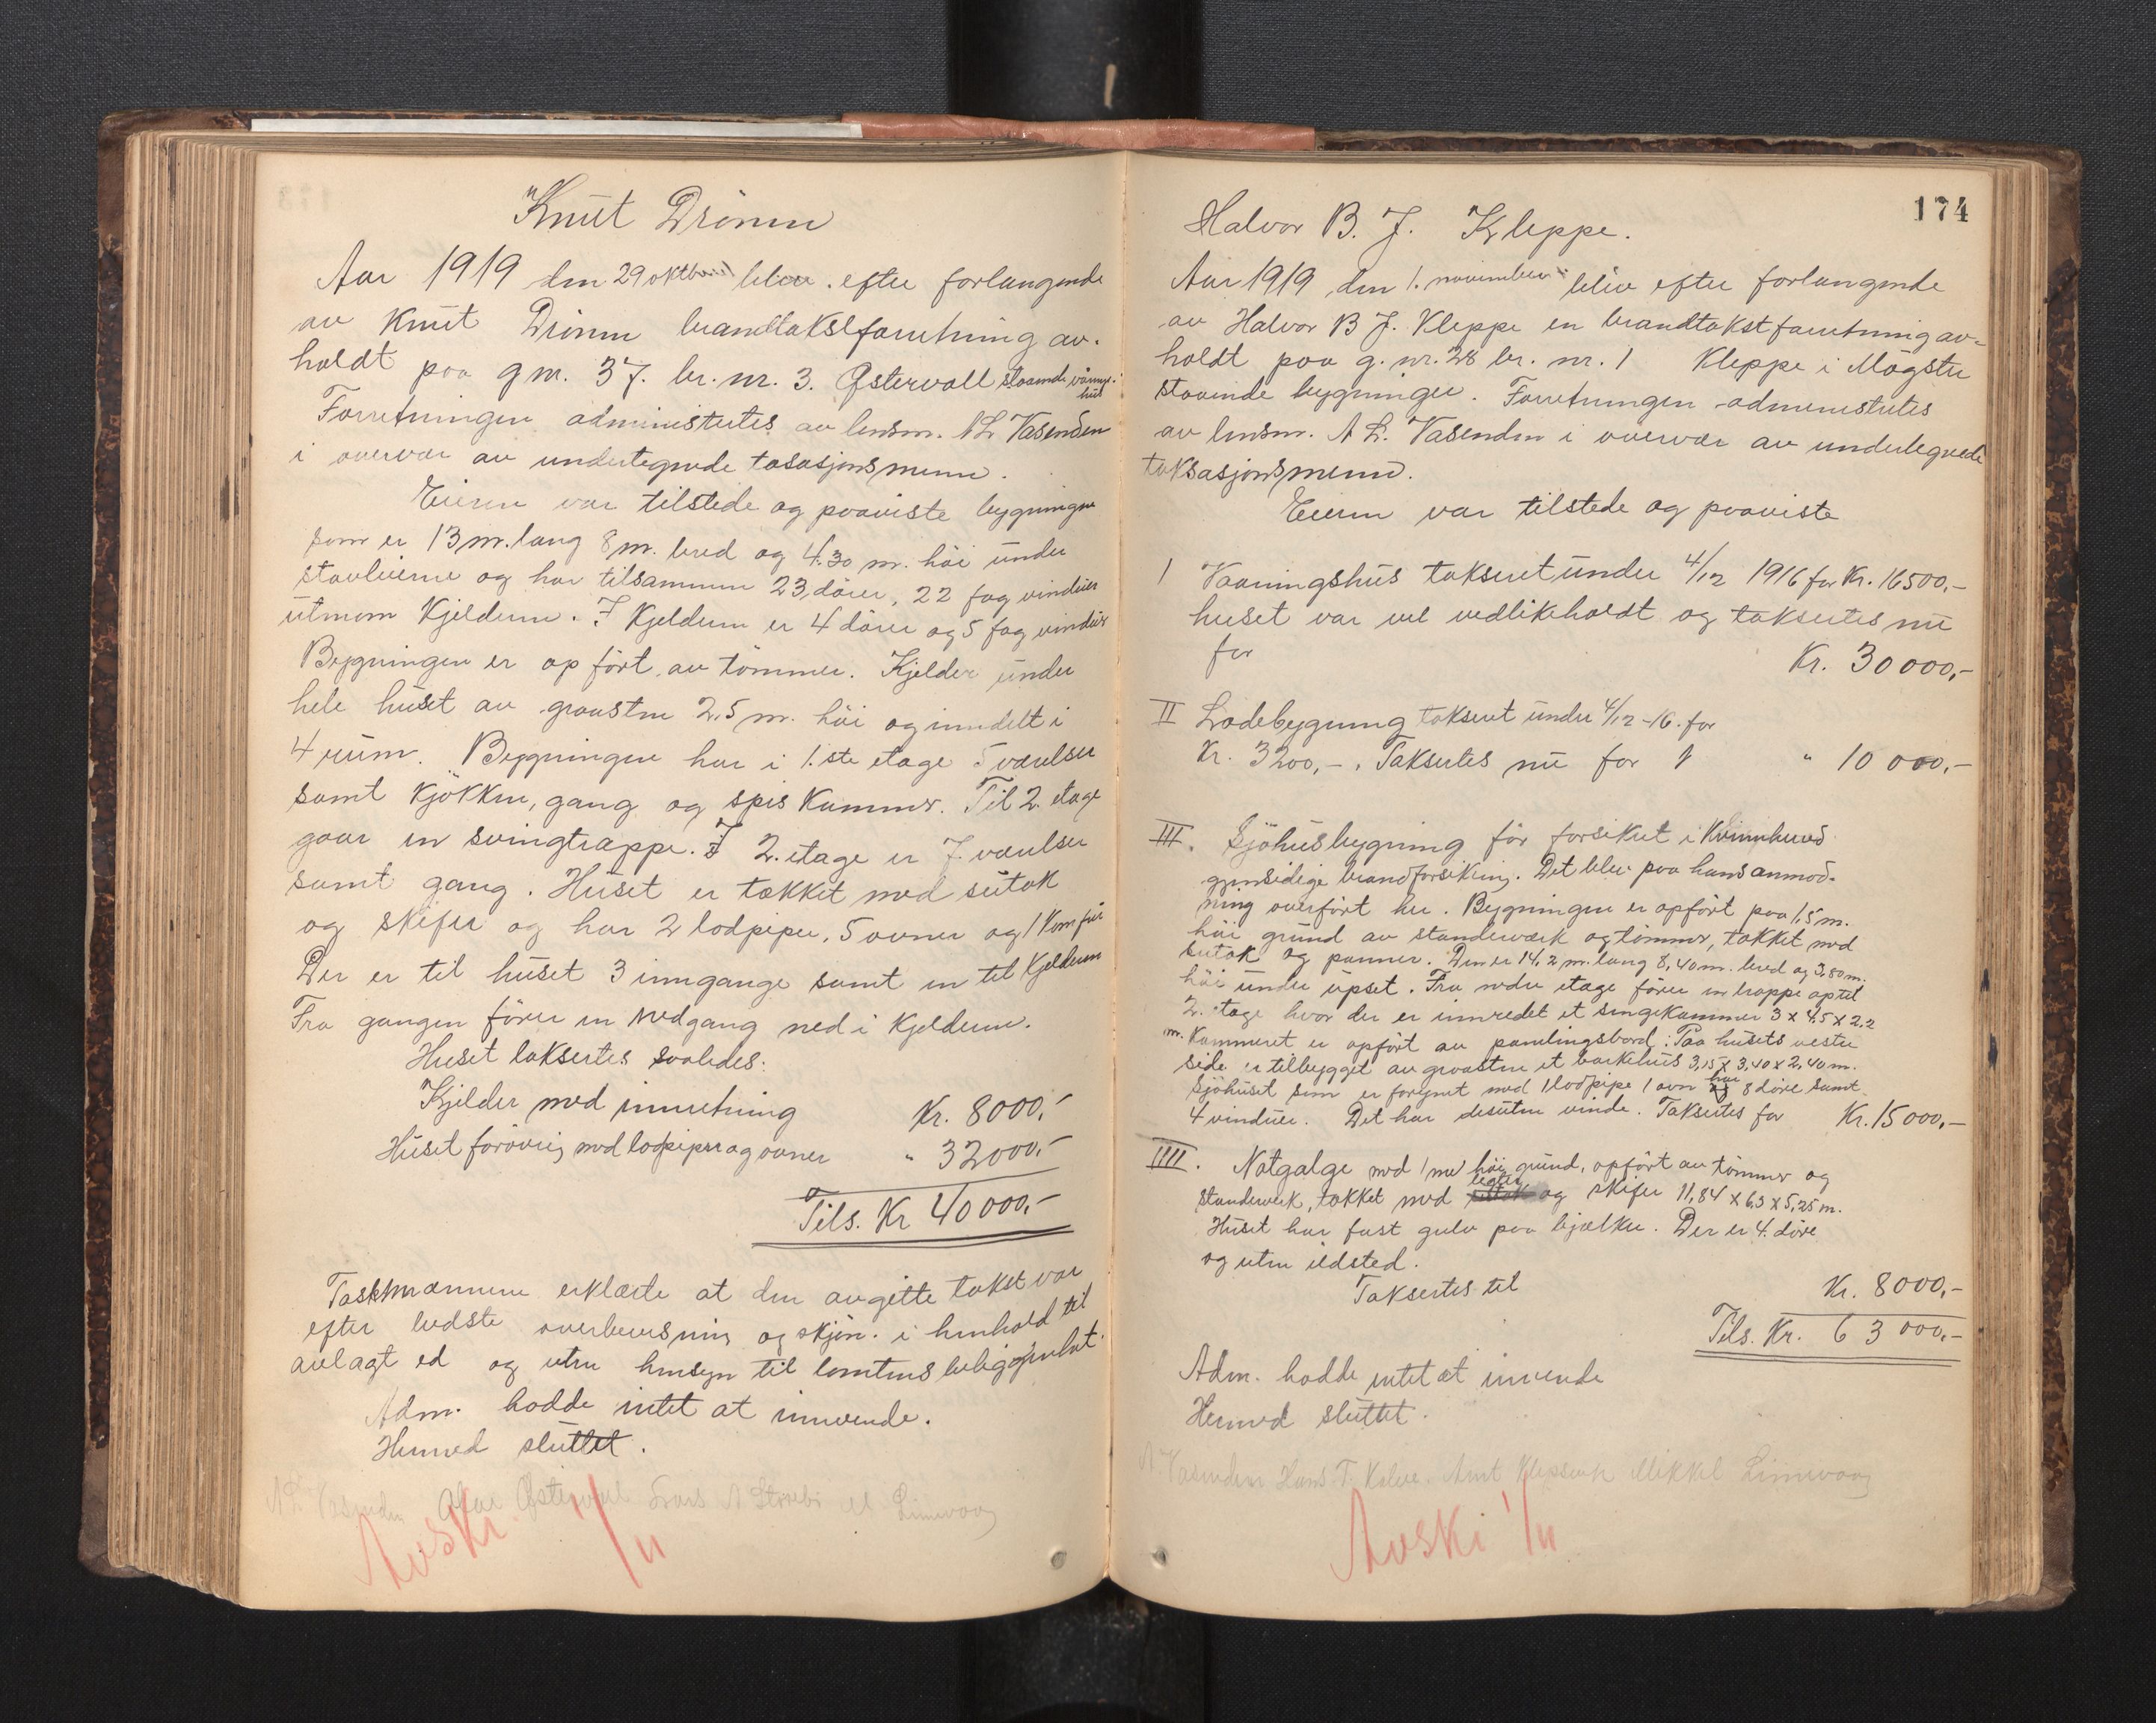 Knut Drönen
Aar 1919 den 29 oktober blev efter forlangende
av Knut Drönen brandtakstforretning av-
holdt paa gnr. 37. br. nr. 3. Østervoll staaende vånings-
hus
Forretningen administertes av lensm. N L Vasenden
i overvær av undertegnede tasasjonsmenn.
Eieren var tilstede og paaviste bygningen
som er 13 m. lang 8 m. bred og 4.30 m. höi under
stavleierne og har tilsammen 23 dörer, 22 fag vinduer
utenom Kjelderen. I Kjelderen er 4 dörer og 5 fag vinduer
Bygningen er opfört av tömmer. Kjelder under
hele huset av graasten 2,5 m. höi og inndelt i
4 rum. Bygningen har i 1.ste etage 5 værelser
samt Kjökken, gang og spisKammer. Til 2. etage
gaar en svingtrappe. I 2. etage er 7 værelser
samt gang. Huset er tækket med sutak
og skifer og har 2 lodpiper, 5 ovner og 1 Komfür
Der er til huset 3 innganger samt en til Kjelderen
Fra gangen förer en nedgang ned i Kjelderen.
Huset taksertes saaledes:
Kjelder med innretning Kr. 8000,-
Huset forövrig med lodpiper og ovner " 32000,-
Tils. Kr 40000,-
Taskmænnene erklærte at den avgitte takst var
efter bedste overbevisning og skjön. i henhold til
avlagt ed og uten hensyn til tomtens beliggenhet.
Adm. hadde intet at innvende.
Hermed sluttet.
N L Vasenden Olai Østervoll Lars A Störebö M Linnvaag
Avskr. 1/11
174
Halvor B. J. Kleppe.
Aar 1919 den 1. november blev efter forlangende
av Halvor B J. Kleppe en brandtakstforretning av-
holdt paa g. nr. 28 br. nr. 1 Kleppe i Møgster
staaende bygninger. Forretningen administertes
av lensm. N L. Vasenden i overvær av undertegnede
taksasjonsmenn.
Eieren var tilstede og paaviste
1 Vaaningshus taksert under 4/12 1916 for Kr. 16500,-
huset var vel vedlikeholdt og taksertes nu
for Kr. 30000,-
II Ladebygning taksert under 4/12-16. for
Kr. 3200,-. Taksertes nu for " 10000,-
III. Sjöhusbygning för forsikret i Kvinnherred
gjensidige brandforsikring. Det blev paa hans anmod-
ning overfört her. Bygningen er opfört paa 1,5 m.
höi grund av standerværk og tömmer, tækket med
sutak og panner. Den er 14,2 m. lang 8,40 m. bred og 3,80 m.
höi under upset. Fra nedre etage förer en trappe op til
2. etage hvor der er innredet et sengekammer 3 x 4,5 x 2,2
m. Kammeret er opfört av panelingsbord: Paa husets vestre
side er tilbygget av graasten et barkehus 3,15 x 3,40 x 2,40 m.
Sjöhuset som er forsynet med 1 lodpipe 1 ovn har 8 döre samt
4 vinduer. Det har desuten vinde. Taksertes for Kr. 15000,-
IIII. Notgalge med 1 met höi grund, opfört av tömmer og
standerverk, tækket med lekter og skifer 11,84 x 6,3 x 5,25 m.
Huset har fast gulv paa bjælker. Der er 4. döre
og uten ildsted.
Taksertes til Kr. 8000,-
Tils. Kr. 63000,-
Adm. hadde intet at innvende
Hermed sluttet.
N Vasenden Hans T. Kalve. Amt Klepsvik Mikkel Linnvaag
Avskr 1/11